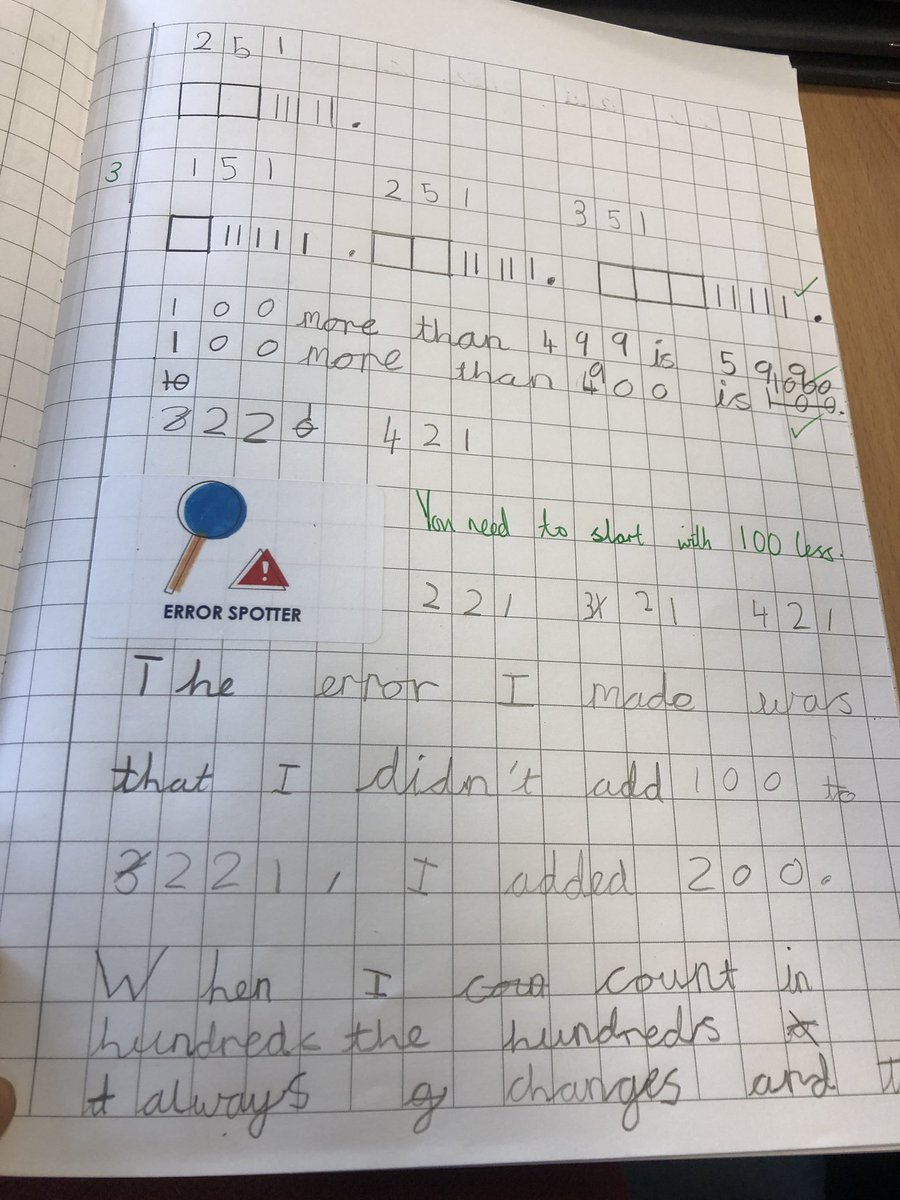 251
3
151
251
351
100 more than 499 is 599
100 more than 900 is 1000.
221 421
ERROR SPOTTER
You need to start with 100 less.
221 321 421
The error I made was
that I didn't add 100 to
221, I added 200.
When I count in
hundreds the hundreds
always changes and t